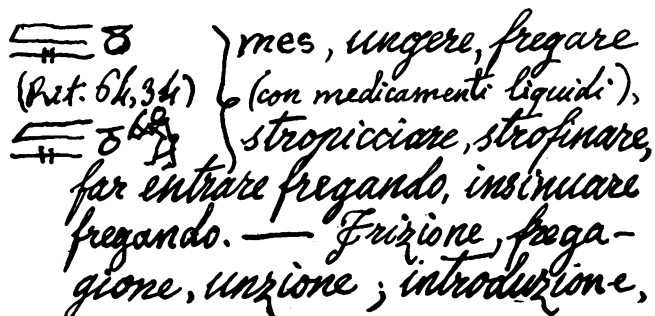 mes, ungere, fregare
(Rit. 64,34) (con medicamenti liquidi),
stropicciare, strofinare,
far entrare fregando, insinuare
fregando. — Frizione, frega-
gione, unzione; introduzione,